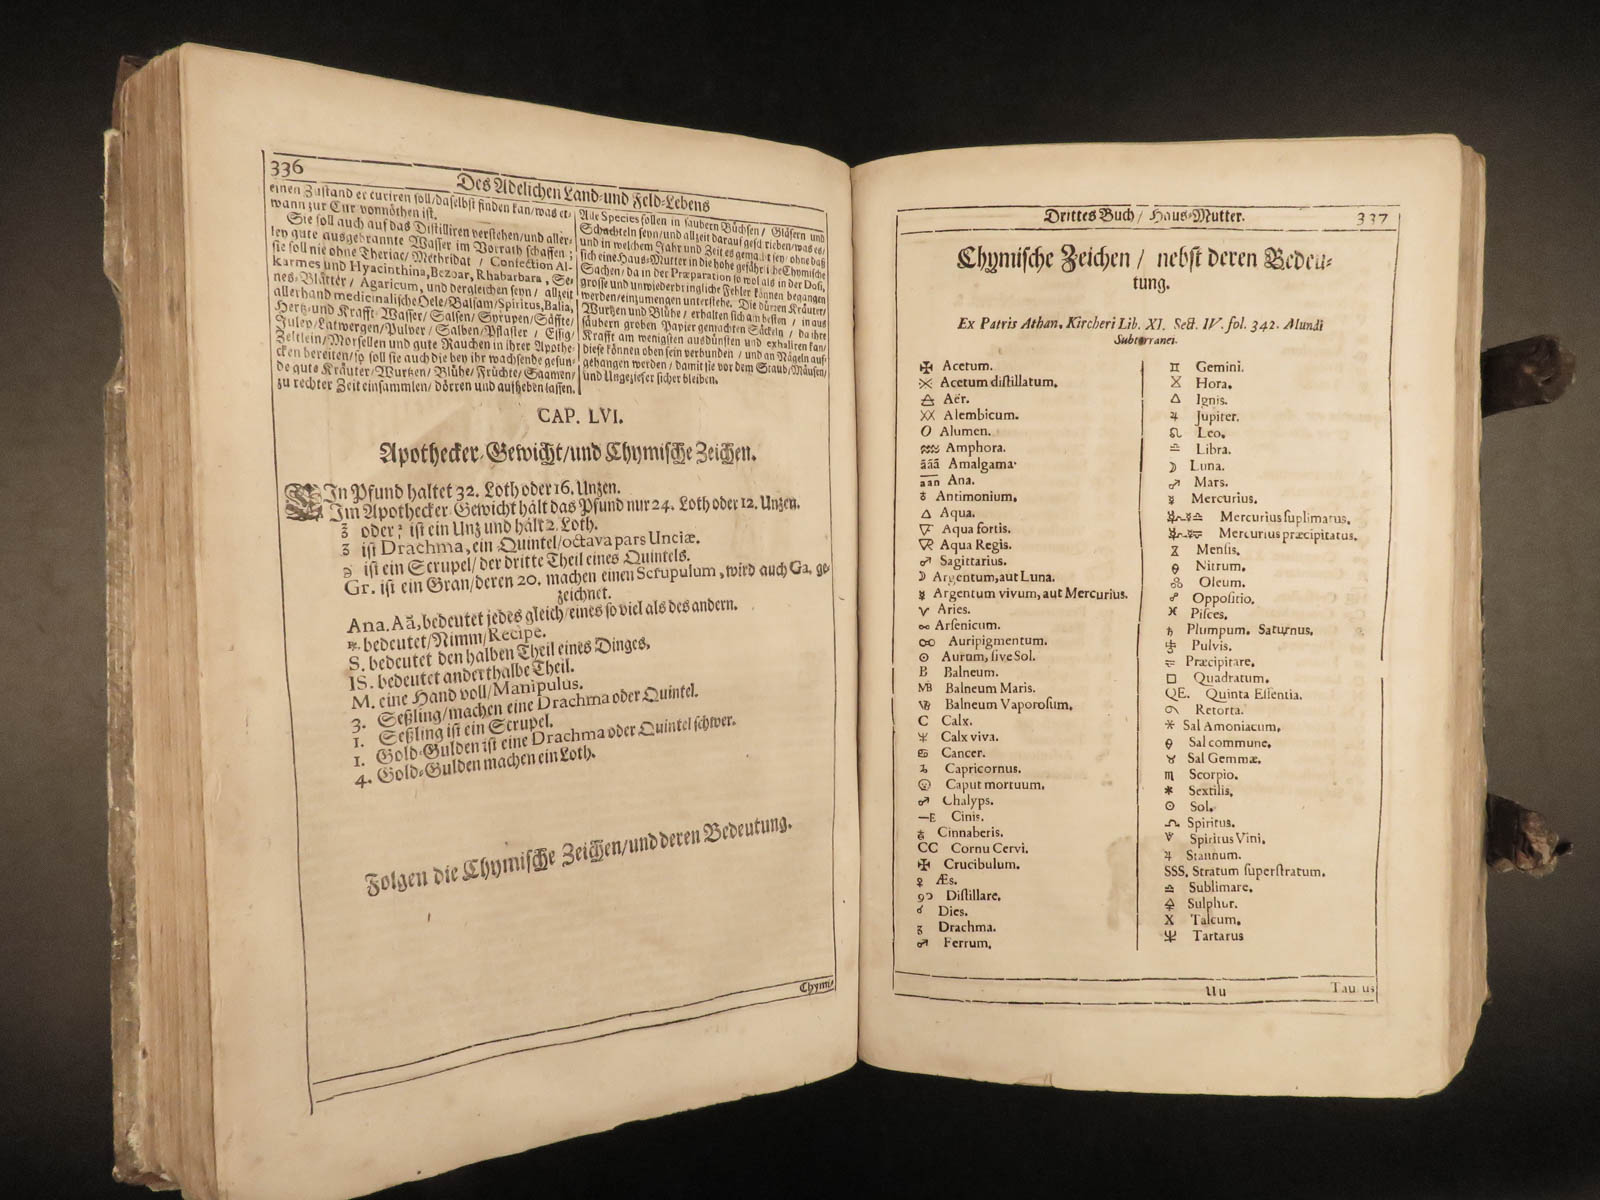 336
Des Adelichen Land-und Feld-Lebens
einen Zustand er curiren soll/daselbst finden kan/was et-
wann zur Cur vonnöthen ist.
Sie soll auch auf das Distilliren verstehen/und aller-
ley gute ausgebrannte Wasser im Vorrath schaffen;
sie soll nie ohne Theriac/Methridat/Confection Al-
karmes und Hyacinthina, Bezoar, Rhabarbara, Se-
nes-Blätter/Agaricum, und dergleichen seyn/allzeit
allerhand medicinalische Oele/Balsam/Spiritus, Balia,
Hertz-und Krafft-Wasser/Salsen/Syrupen/Säffte/
Julep/Latwergen/Pulver/Salben/Pflaster/Essig/
Zeltlein/Morsellen und gute Rauchen in ihrer Apothe-
cken bereiten/so soll sie auch die bey ihr wachsende gesun-
de gute Kräuter/Wurtzen/Blühe/Früchte/Saamen/
zu rechter Zeit einsammlen/dörren und aufheben lassen.
Alle Species sollen in saubern Büchsen/Gläsern und
Schachteln seyn/und allzeit darauf geschrieben/was es/
und in welchem Jahr und Zeit es gemacht sey/ohne daß
sich eine Haus-Mutter in die hohe gefährliche Chymische
Sachen/da in der Præparation so wol als in der Dosi,
grosse und unwiederbringliche Fehler können begangen
werden/einzumengen unterstehe. Die dürren Kräuter/
Wurtzen und Blühe/erhalten sich am besten/in aus
säubern groben Papier gemachten Säckeln/da ihre
Krafft am wenigsten ausdünsten und exhaliren kan/
diese können oben fein verbunden/und an Nägeln auf-
gehangen werden/damit sie vor dem Staub/Mäusen/
und Ungeziefer sicher bleiben.
CAP. LVI.
Apothecker-Gewicht/und Chymische Zeichen.
EIn Pfund haltet 32. Loth oder 16. Unzen.
Im Apothecker-Gewicht hält das Pfund nur 24. Loth oder 12. Unzen.
℥ oder ist ein Unz und hält 2. Loth.
ʒ ist Drachma, ein Quintel/octava pars Unciæ.
℈ ist ein Scrupel/der dritte Theil eines Quintels.
Gr. ist ein Gran/deren 20. machen einen Scrupulum, wird auch Ga. ge-
zeichnet.
Ana. Aā, bedeutet jedes gleich/eines so viel als des andern.
℞. bedeutet/Nimm/Recipe.
S. bedeutet den halben Theil eines Dinges,
IS. bedeutet anderthalbe Theil.
M. eine Hand voll/Manipulus.
3. Seßling/machen eine Drachma oder Quintel.
1. Seßling ist ein Scrupel.
1. Gold-Gulden ist eine Drachma oder Quintel schwer.
4. Gold-Gulden machen ein Loth.
Folgen die Chymische Zeichen/und deren Bedeutung.
Chymi-
Drittes Buch/Haus-Mutter.
337
Chymische Zeichen/nebst deren Bedeu-
tung.
Ex Patris Athan. Kircheri Lib. XI. Sect. IV. fol. 342. Mundi
Subterranei.
✠ Acetum.
Acetum distillatum.
Aër.
XX Alembicum.
O Alumen.
♒ Amphora.
ããã Amalgama.
aan Ana.
♁ Antimonium.
△ Aqua.
Aqua fortis.
Aqua Regis.
♂ Sagittarius.
☽ Argentum, aut Luna.
☿ Argentum vivum, aut Mercurius.
♈ Aries.
Arsenicum.
Auripigmentum.
☉ Aurum, sive Sol.
B Balneum.
MB Balneum Maris.
VB Balneum Vaporosum.
C Calx.
Calx viva.
♋ Cancer.
Capricornus.
Caput mortuum.
♂ Chalyps.
—E Cinis.
Cinnaberis.
CC Cornu Cervi.
✠ Crucibulum.
♀ Æs.
Distillare.
Dies.
Drachma.
♂ Ferrum.
♊ Gemini.
Hora.
△ Ignis.
♃ Jupiter.
♌ Leo.
♎ Libra.
☽ Luna.
♂ Mars.
☿ Mercurius.
Mercurius suplimatus.
Mercurius præcipitatus.
Mensis.
Nitrum.
Oleum.
☍ Oppositio.
♓ Pisces.
♄ Plumpum. Saturnus.
Pulvis.
Præcipitare.
□ Quadratum.
QE. Quinta Essentia.
Retorta.
* Sal Amoniacum.
Sal commune.
Sal Gemmæ.
♏ Scorpio.
* Sextilis.
☉ Sol.
Spiritus.
Spiritus Vini.
♃ Stannum.
SSS. Stratum superstratum.
♎ Sublimare.
Sulphur.
X Talcum.
Tartarus
Uu
Taurus